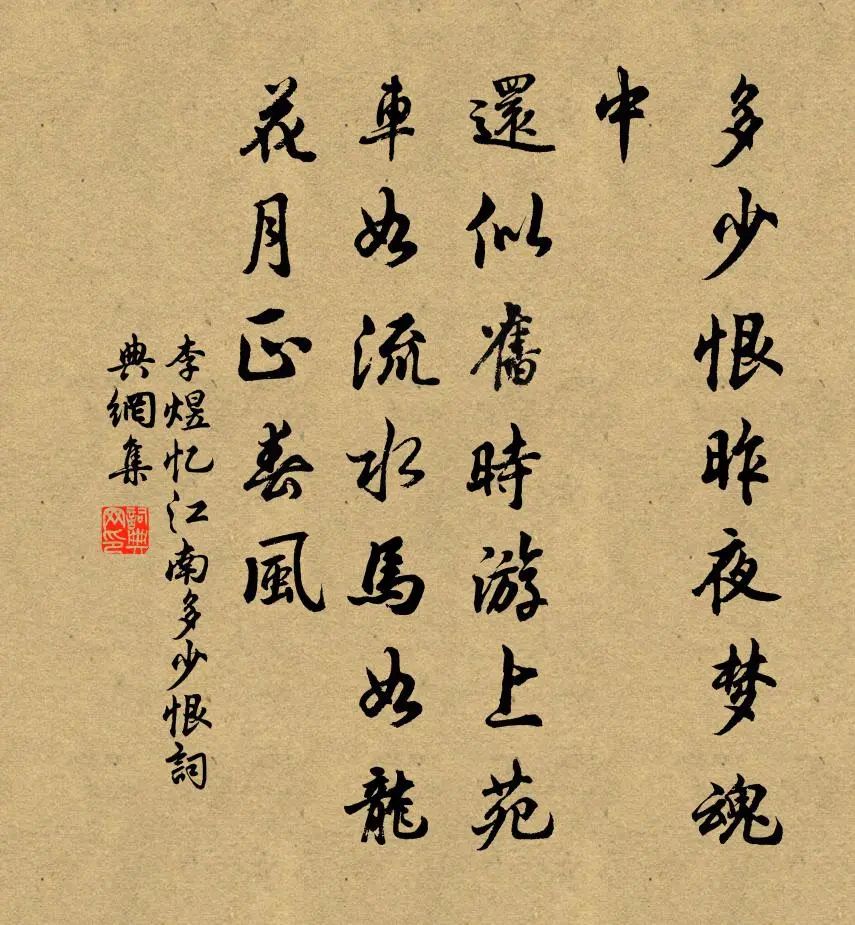 多少恨昨夜梦魂
中
還似舊時游上苑
車如流水馬如龍
花月正春風
李煜忆江南多少恨詞
典網集
詞典
网印